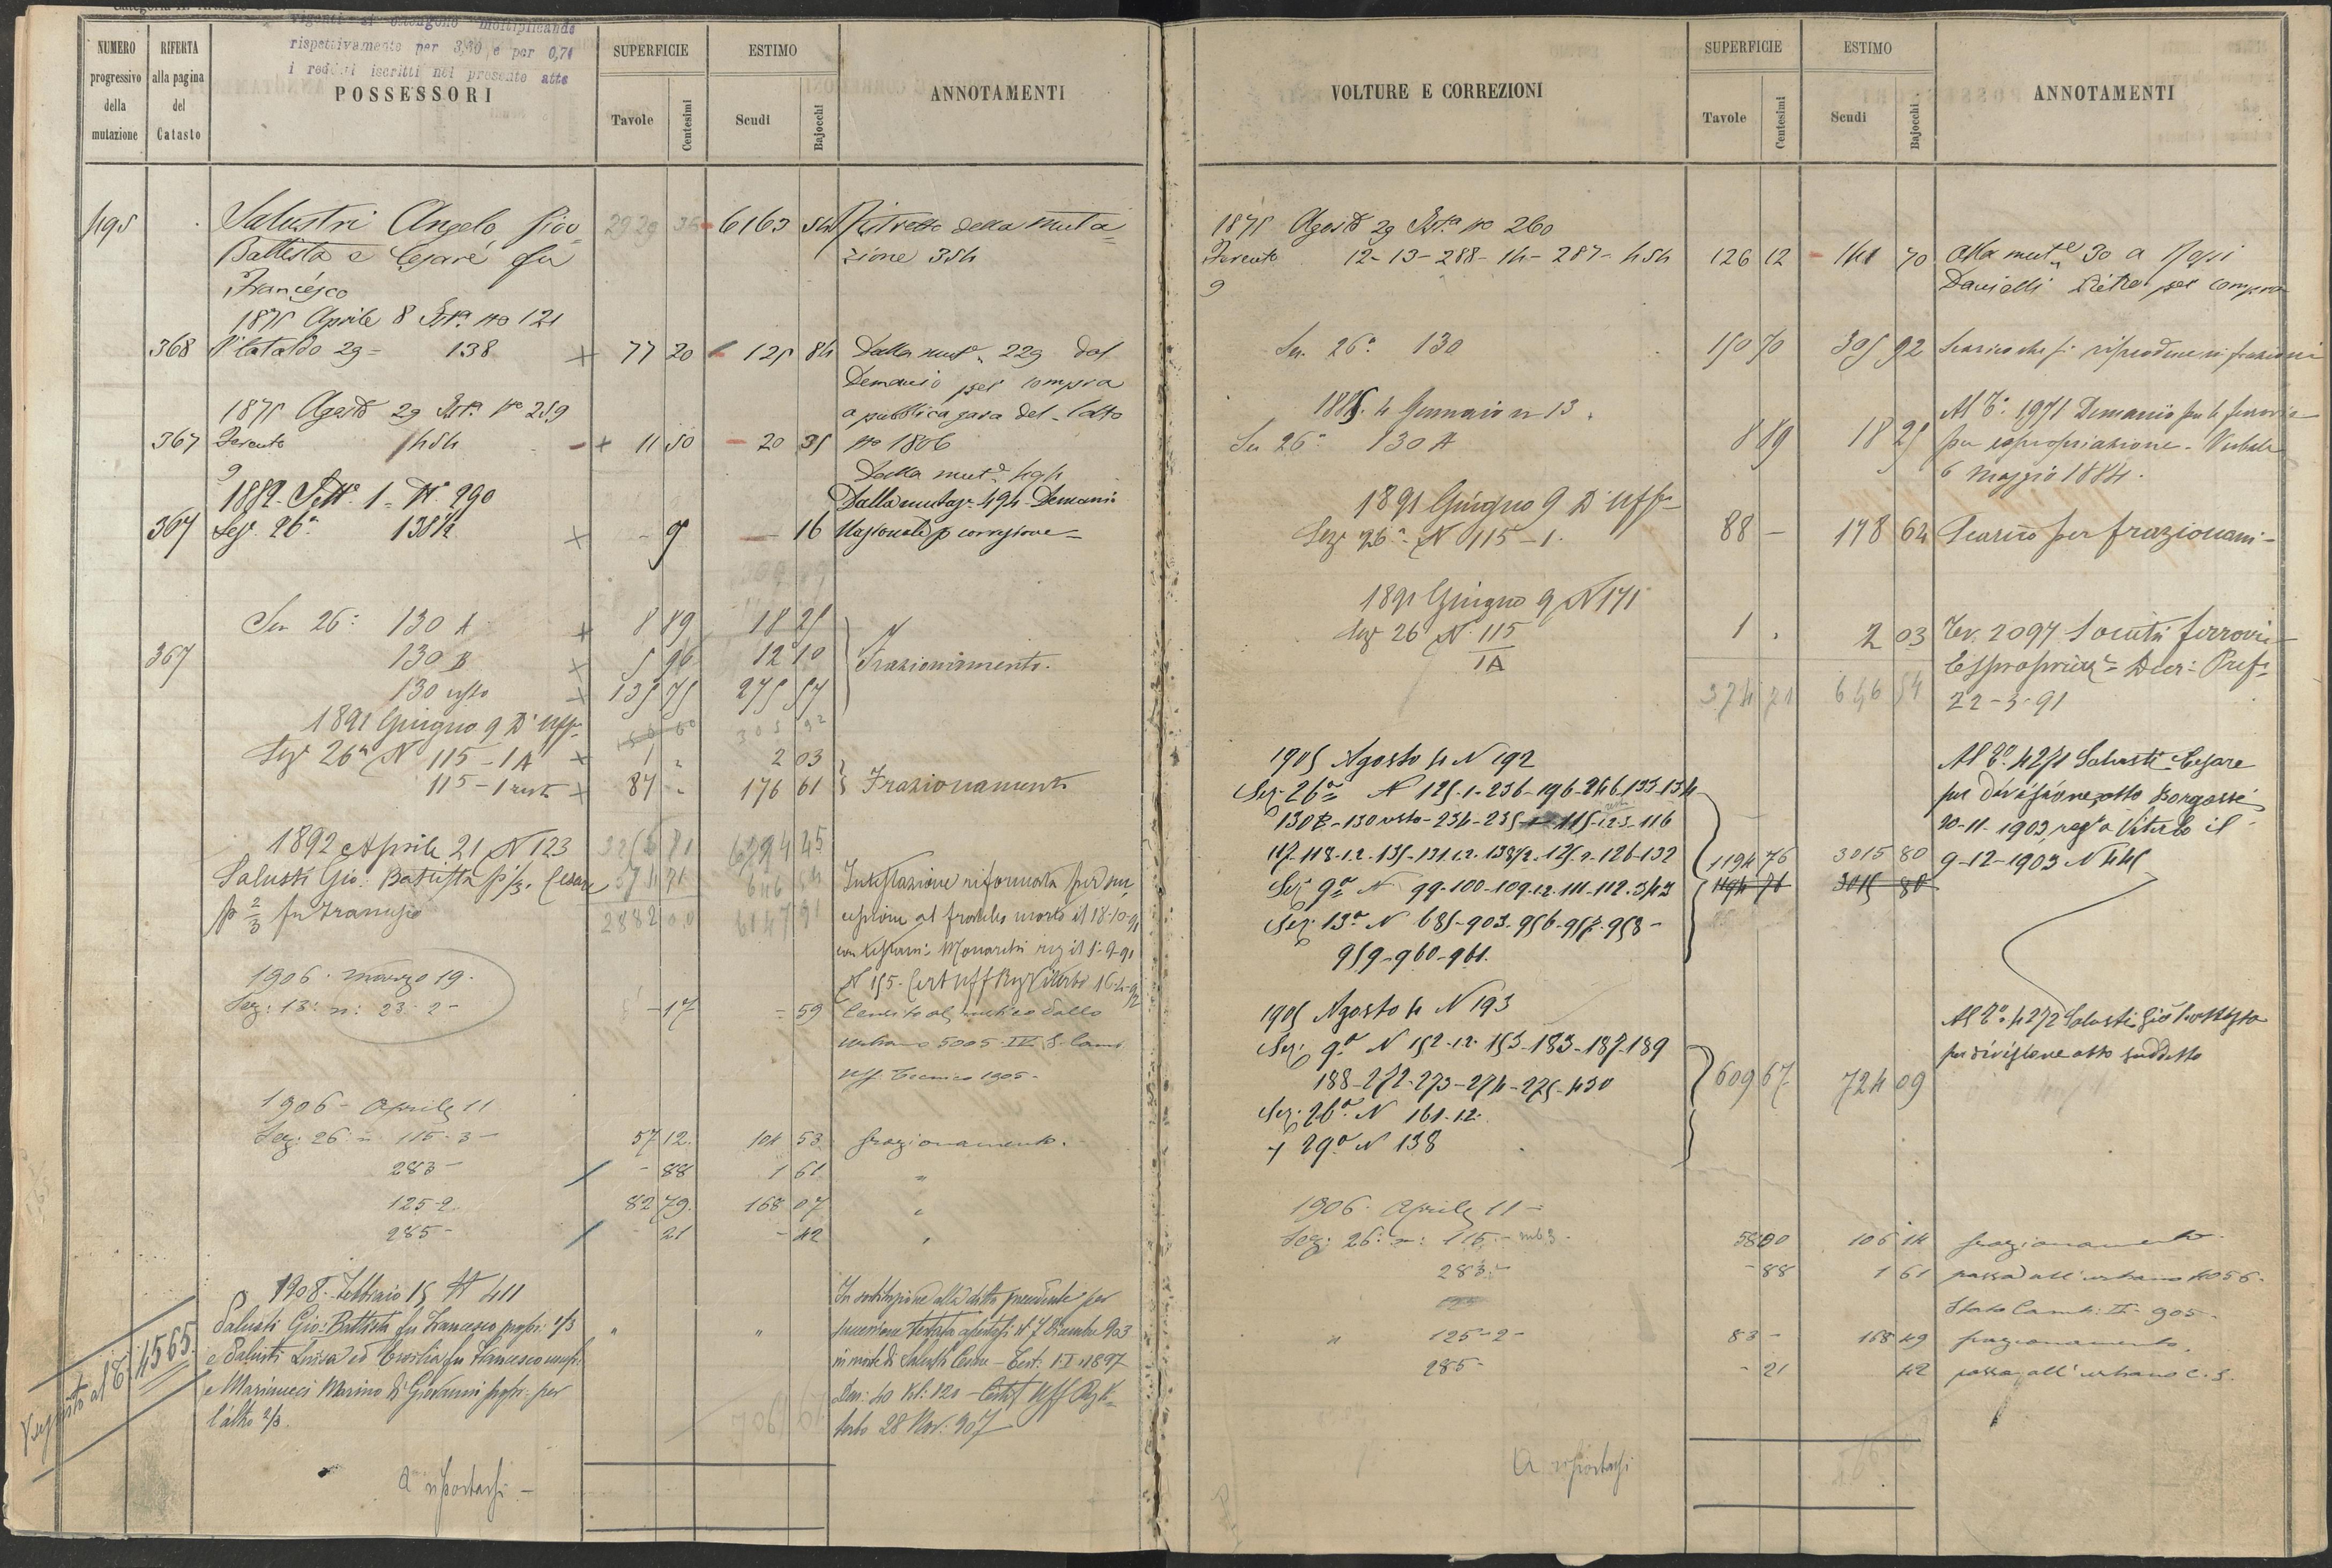 vigenti si ottengono moltiplicando
rispettivamente per 3,30 e per 0,74
i redditi iscritti nel presente atto
NUMERO progressivo della mutazione
RIFERTA alla pagina del Catasto
POSSESSORI
SUPERFICIE
Tavole Centesimi
ESTIMO
Scudi Bajocchi
ANNOTAMENTI
495 Salustri Angelo Giov 2929 36 6163 54 Ritratto della muta=
Battista e Cesare fu zione 354
Francesco
1875 Aprile 8 No 121
368 29= 138 + 77 20 125 84 Dalla mut 229 dal
Demanio per compra
1875 Agosto 29 No 259 a pubblica gara del lotto
367 Ferento 454 + 11 50 20 35 no 1806
9 Dalla mut 494
1882 Sett. 1= No 290 Dalla mutaz 494 Demanio
367 Sez. 26a 138 1/2 + - 9 - 16 Nazionale p correzione
Sez 26a 130 A + 8 89 18 25
367 130 B + 5 96 12 10 Frazionamento.
130 resto + 135 75 275 57
1891 Giugno 9 D' Uff 305 92
Sez 26a N 115-1A + 1 " 2 03
115-1 resto + 87 - 176 61 Frazionamento
1892 Aprile 21 N 123 6794 25
Salusti Gio: Battista p 1/3, Cesare 646 54 Intestazione riformata per suc
p 2/3 fu Francesco 2882 00 6147 91 cessione al fratello morto il 18-10-91
N 155. Cert Uff Reg Viterbo 16-4-92
1906. marzo 19.
Sez: 13: n: 23.2- - 17 = 59
urbano 5005 IV S. Camb
Uff. Tecnico 1905-
1906- Aprile 11
Sez: 26: n 115.3- 57 12. 104 53 frazionamento.
283- - 88 1 61 "
125-2 82 79. 168 07 "
285- - 21 - 42 "
1908. Febbraio 15 N 411 In sostituzione alla ditta precedente per
Salusti Gio: Battista fu Francesco propr: 1/3 " " successione testata apertasi il 7 Dicembre 903
e Salusti Luisa ed Ersilia fu Francesco usufr. in morte di Salusti Cesare - Test: 1897
e Marinucci Marino di Giovanni propr: per Den: 40 Vol: 120 - Certif Uff Reg Vi=
l'altro 2/3. terbo 28 Nov: 907
Segnato al 4565.
A riportarsi -
VOLTURE E CORREZIONI
SUPERFICIE
Tavole Centesimi
ESTIMO
Scudi Bajocchi
ANNOTAMENTI
1875 Agosto 29 No 260
Ferento 12-13-288-14-287-454 126 12 141 70 Alla mut 30 a Rossi
9 Danielli Pietro per compra
Sez. 26a 130 150 70 305 92 Scarico che si riproduce in frazioni
1885. 4 Gennaio n 13. Al T: 1971 Demanio per le ferrovie
Sez 26a 130 A 8 89 18 25 per espropriazione. Verbale
6 Maggio 1884.
1891 Giugno 9 D' Uff
Sez 26a N 115-1. 88 - 178 64 Scarico per frazionam-
1891 Giugno 9 N 171
Sez 26 N 115 1 . 2 03 Tev. 2097 Società ferrovie
1A Espropriaz= Decr: Pref=
374 71 646 54 22-3-91
1905 Agosto 4 N 192 Al T.o 4271 Salusti Cesare
Sez. 26a N 125.1-236-196-246-133-134 per divisione atto Borgassi
130B-130 resto-234-235-115-123-116 20-11-1903 reg a Viterbo il
117-118-1.2-135-131.1.2-138/2-125.2-126-132 1194 76 3015 80 9-12-1903 N 445
Sez 9a N 99-100-109-12-111-112-343 1194 76 3015 80
Sez. 13a N 685-903-956-957-958-
959-960-961.
1905 Agosto 4 N 193 Al T.o 4272 Salusti Gio Battista
Sez. 9a N 152-1.2-153-183-187-189 per divisione atto suddetto
188-272-273-274-275-430 609 67 724 09
Sez. 26a N 161-1.2.
29a N 138
1906. Aprile 11-
Sez: 26: n: 115.- sub 3- 58 00 106 14 frazionamento.
283- - 88 1 61 passa all' urbano 4056.
Stato Camb: II- 905-
" 125-2- 83 - 168 49 frazionamento.
285- - 21 42 passa all' urbano c.s.
A riportarsi